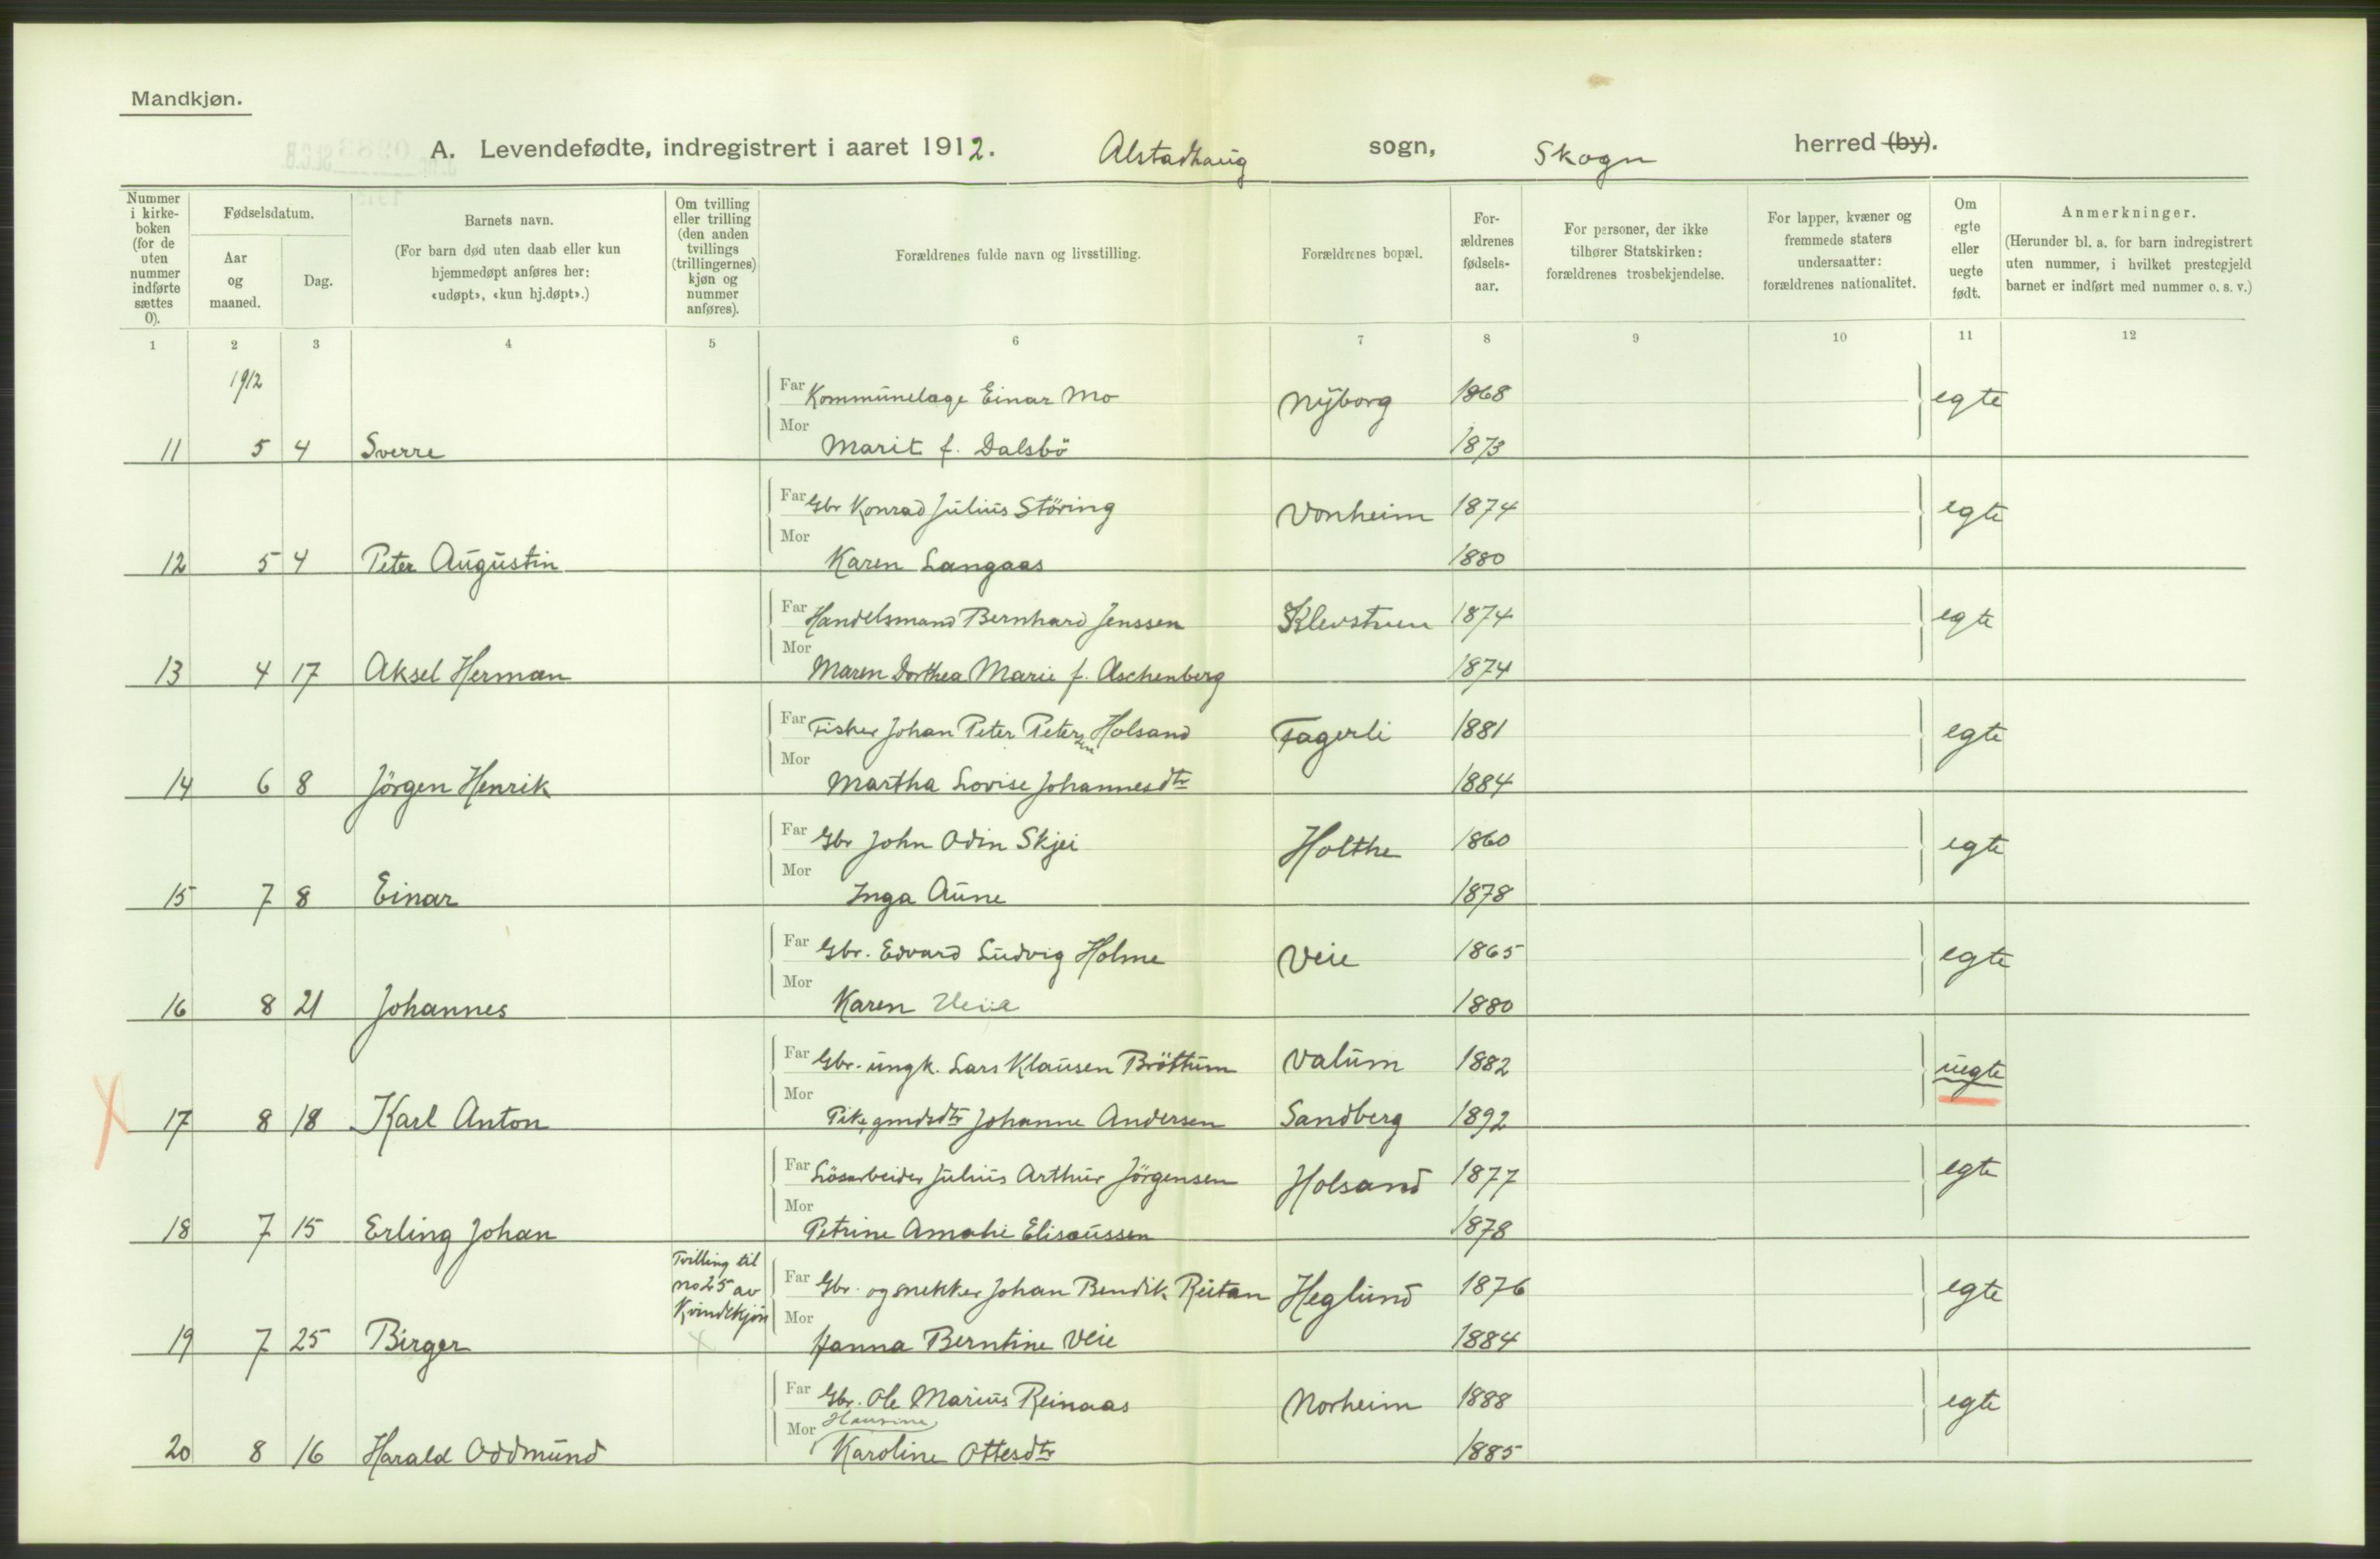 Mandkjøn.
A. Levendefødte, indregistrert i aaret 1912. Alstadhaug sogn, Skogn herred (by).
Nummer i kirke-boken (for de uten nummer indførte sættes 0).
Fødselsdatum.
Aar og maaned.
Dag.
Barnets navn.
(For barn død uten daab eller kun hjemmedøpt anføres her: «udøpt», «kun hj.døpt».)
Om tvilling eller trilling (den anden tvillings (trillingernes) kjøn og nummer anføres).
Forældrenes fulde navn og livsstilling.
Forældrenes bopæl.
For-ældrenes fødsels-aar.
For personer, der ikke tilhører Statskirken: forældrenes trosbekjendelse.
For lapper, kvæner og fremmede staters undersaatter: forældrenes nationalitet.
Om egte eller uegte født.
Anmerkninger.
(Herunder bl. a. for barn indregistrert uten nummer, i hvilket prestegjeld barnet er indført med nummer o. s. v.)
1 2 3 4 5 6 7 8 9 10 11 12
1912
Far Kommunelæge Einar Mo Nyborg 1868 egte
11 5 4 Sverre Mor Marit f. Dalsbö 1873
Far Gbr Konrad Julius Störing Vonheim 1874 egte
12 5 4 Peter Augustin Mor Karen Langaas 1880
Far Handelsmand Bernhard Jenssen Klevstuen 1874 egte
13 4 17 Aksel Herman Mor Maren Dorthea Marie f. Aschenberg 1874
Far Fisker Johan Peter Peters. Holsand Fagerli 1881 egte
14 6 8 Jörgen Henrik Mor Martha Lovise Johannesdtr 1884
Far Gbr John Odin Skjei Holthe 1860 egte
15 7 8 Einar Mor Inga Aune 1878
Far Gbr. Edvard Ludvig Holme Veie 1865 egte
16 8 21 Johannes Mor Karen Veiie 1880
Far Gbr. ungk. Lars Klausen Bröttum Valum 1882 uegte
X 17 8 18 Karl Anton Mor Pike, gmdsdtr Johanne Andersen Sandberg 1892
Far Lösarbeider Julius Arthur Jörgensen Holsand 1877 egte
18 7 15 Erling Johan Mor Petrine Amalie Eliseussen 1878
Tvilling til no 25 av Kvindekjön
Far Gbr. og snekker Johan Bendik Reitan Heglund 1876 egte
19 7 25 Birger X Mor Hanna Berntine Veie 1884
Far Gbr. Ole Marius Reinaas Norheim 1888 egte
20 8 16 Harald Oddmund Mor Karoline Ottesdtr 1885